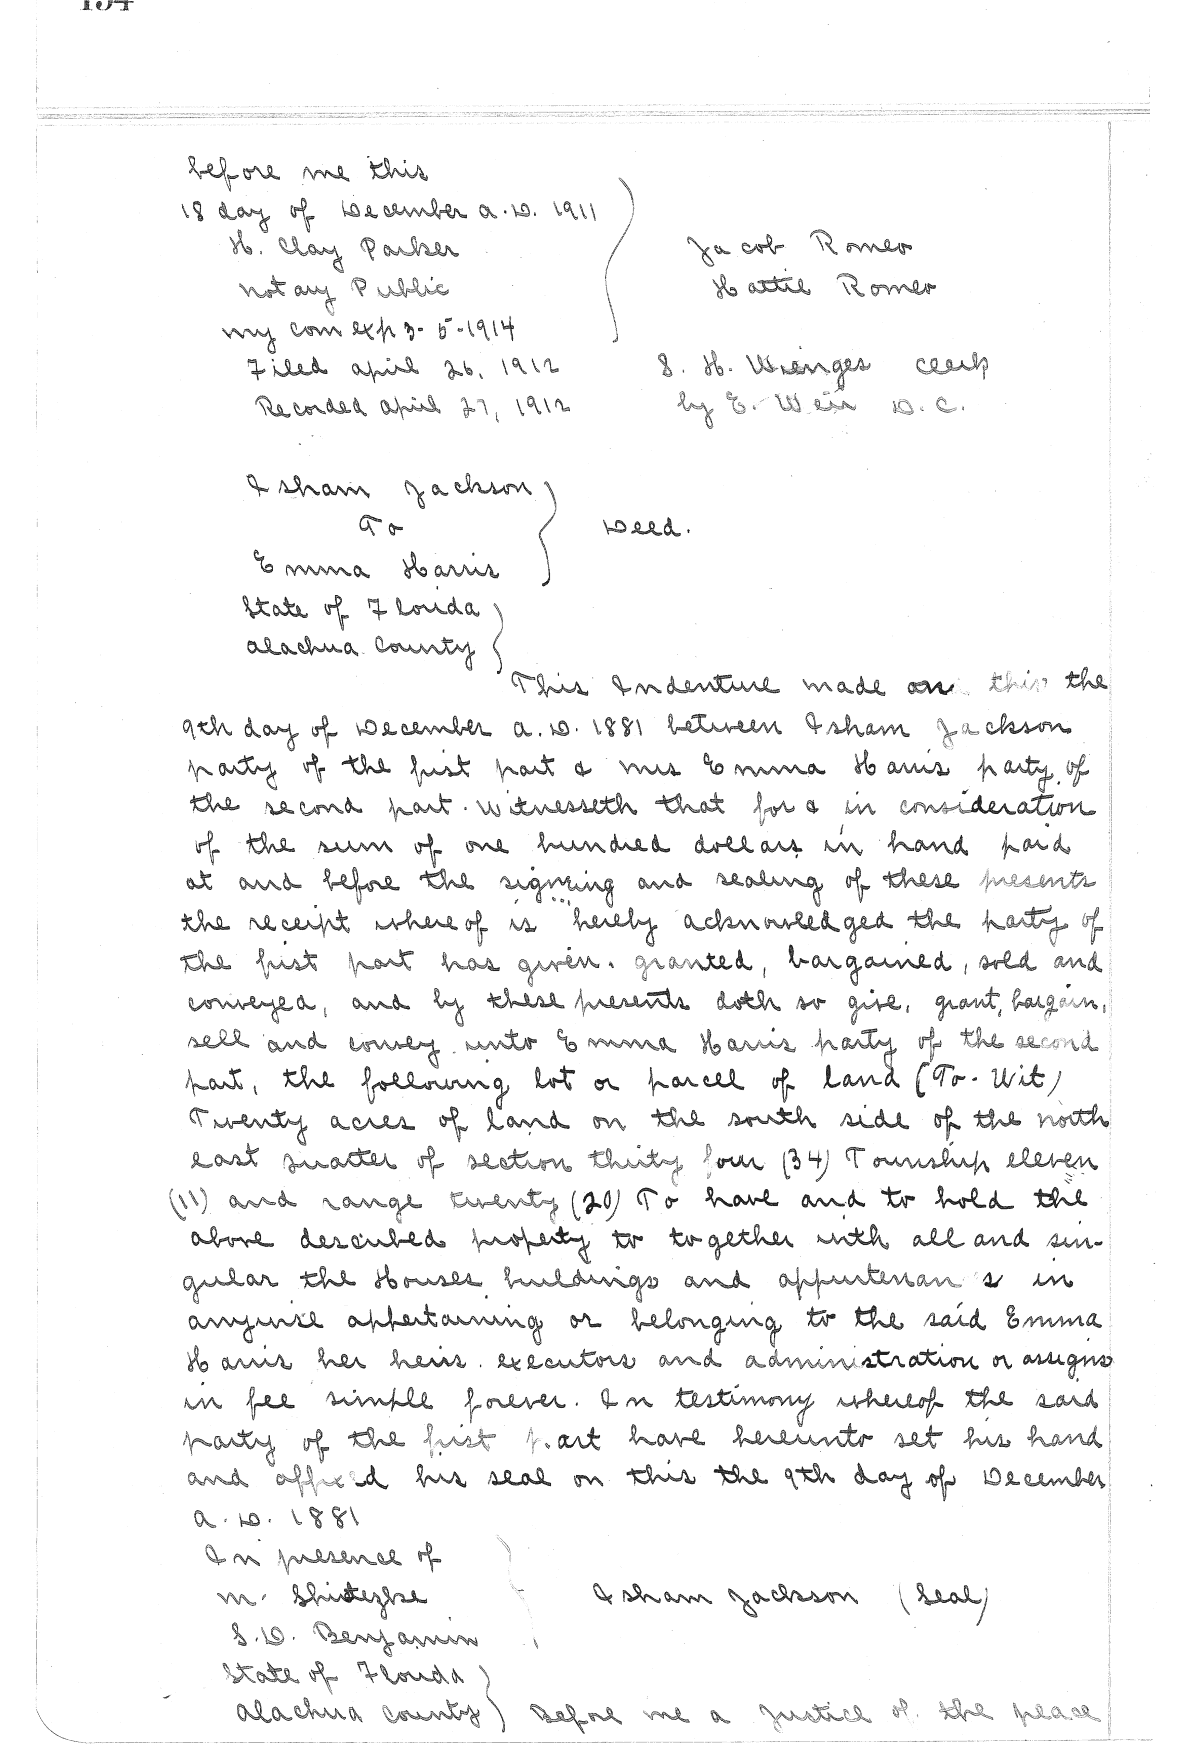 before me this
18 day of December A.D. 1911
H. Clay Parker
Notary Public
my com exp 3-5-1914
Jacob Romeo
Hattie Romeo
Filed April 26, 1912
S. H. Wienges Clerk
Recorded April 27, 1912
by E. Weir D.C.
Isham Jackson
To
Emma Harris
Deed.
State of Florida
Alachua County
This Indenture made on this the
9th day of December A.D. 1881 between Isham Jackson
party of the first part & Mrs Emma Harris party of
the second part. Witnesseth that for & in consideration
of the sum of one hundred dollars in hand paid
at and before the signing and sealing of these presents
the receipt whereof is hereby acknowledged the party of
the first part has given. granted, bargained, sold and
conveyed, and by these presents doth so give, grant, bargain,
sell and convey unto Emma Harris party of the second
part, the following lot or parcell of land (To-Wit)
Twenty acres of land on the south side of the north
east quarter of section thirty four (34) Township eleven
(11) and range twenty (20) To have and to hold the
above described property to together with all and sin-
gular the Houses buildings and appurtenan s in
anywise appertaining or belonging to the said Emma
Harris her heirs. executors and administration or assigns
in fee simple forever. In testimony whereof the said
party of the first part have hereunto set his hand
and affixed his seal on this the 9th day of December
A.D. 1881
In presence of
M.
Isham Jackson (Seal)
S.D. Benjamin
State of Florida
Alachua County Before me a Justice of the peace